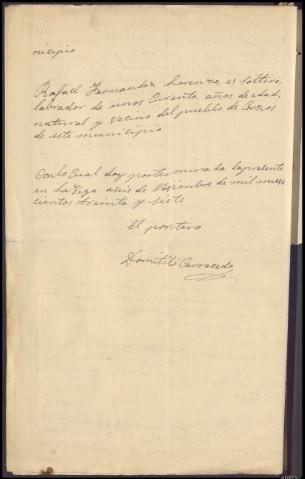 nicipio
Rafael Fernandez Lorenzo, es soltero,
labrador de unos Cuenta años de edad,
natural y vecino del pueblo de Corzos
de este municipio
Con lo Cual doy por terminada la presente
en La Vega a seis de Nobiembre de mil nuve
cientos treinta y siete
El portero
Domitilo Carracedo